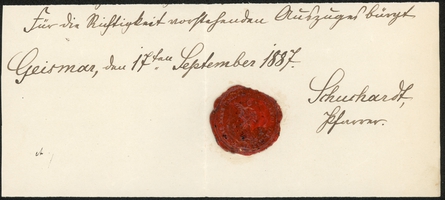 Für die Richtigkeit vorstehenden Auszuges bürgt
Geismar, den 17ten September 1887.
Schuchardt,
Pfarrer.